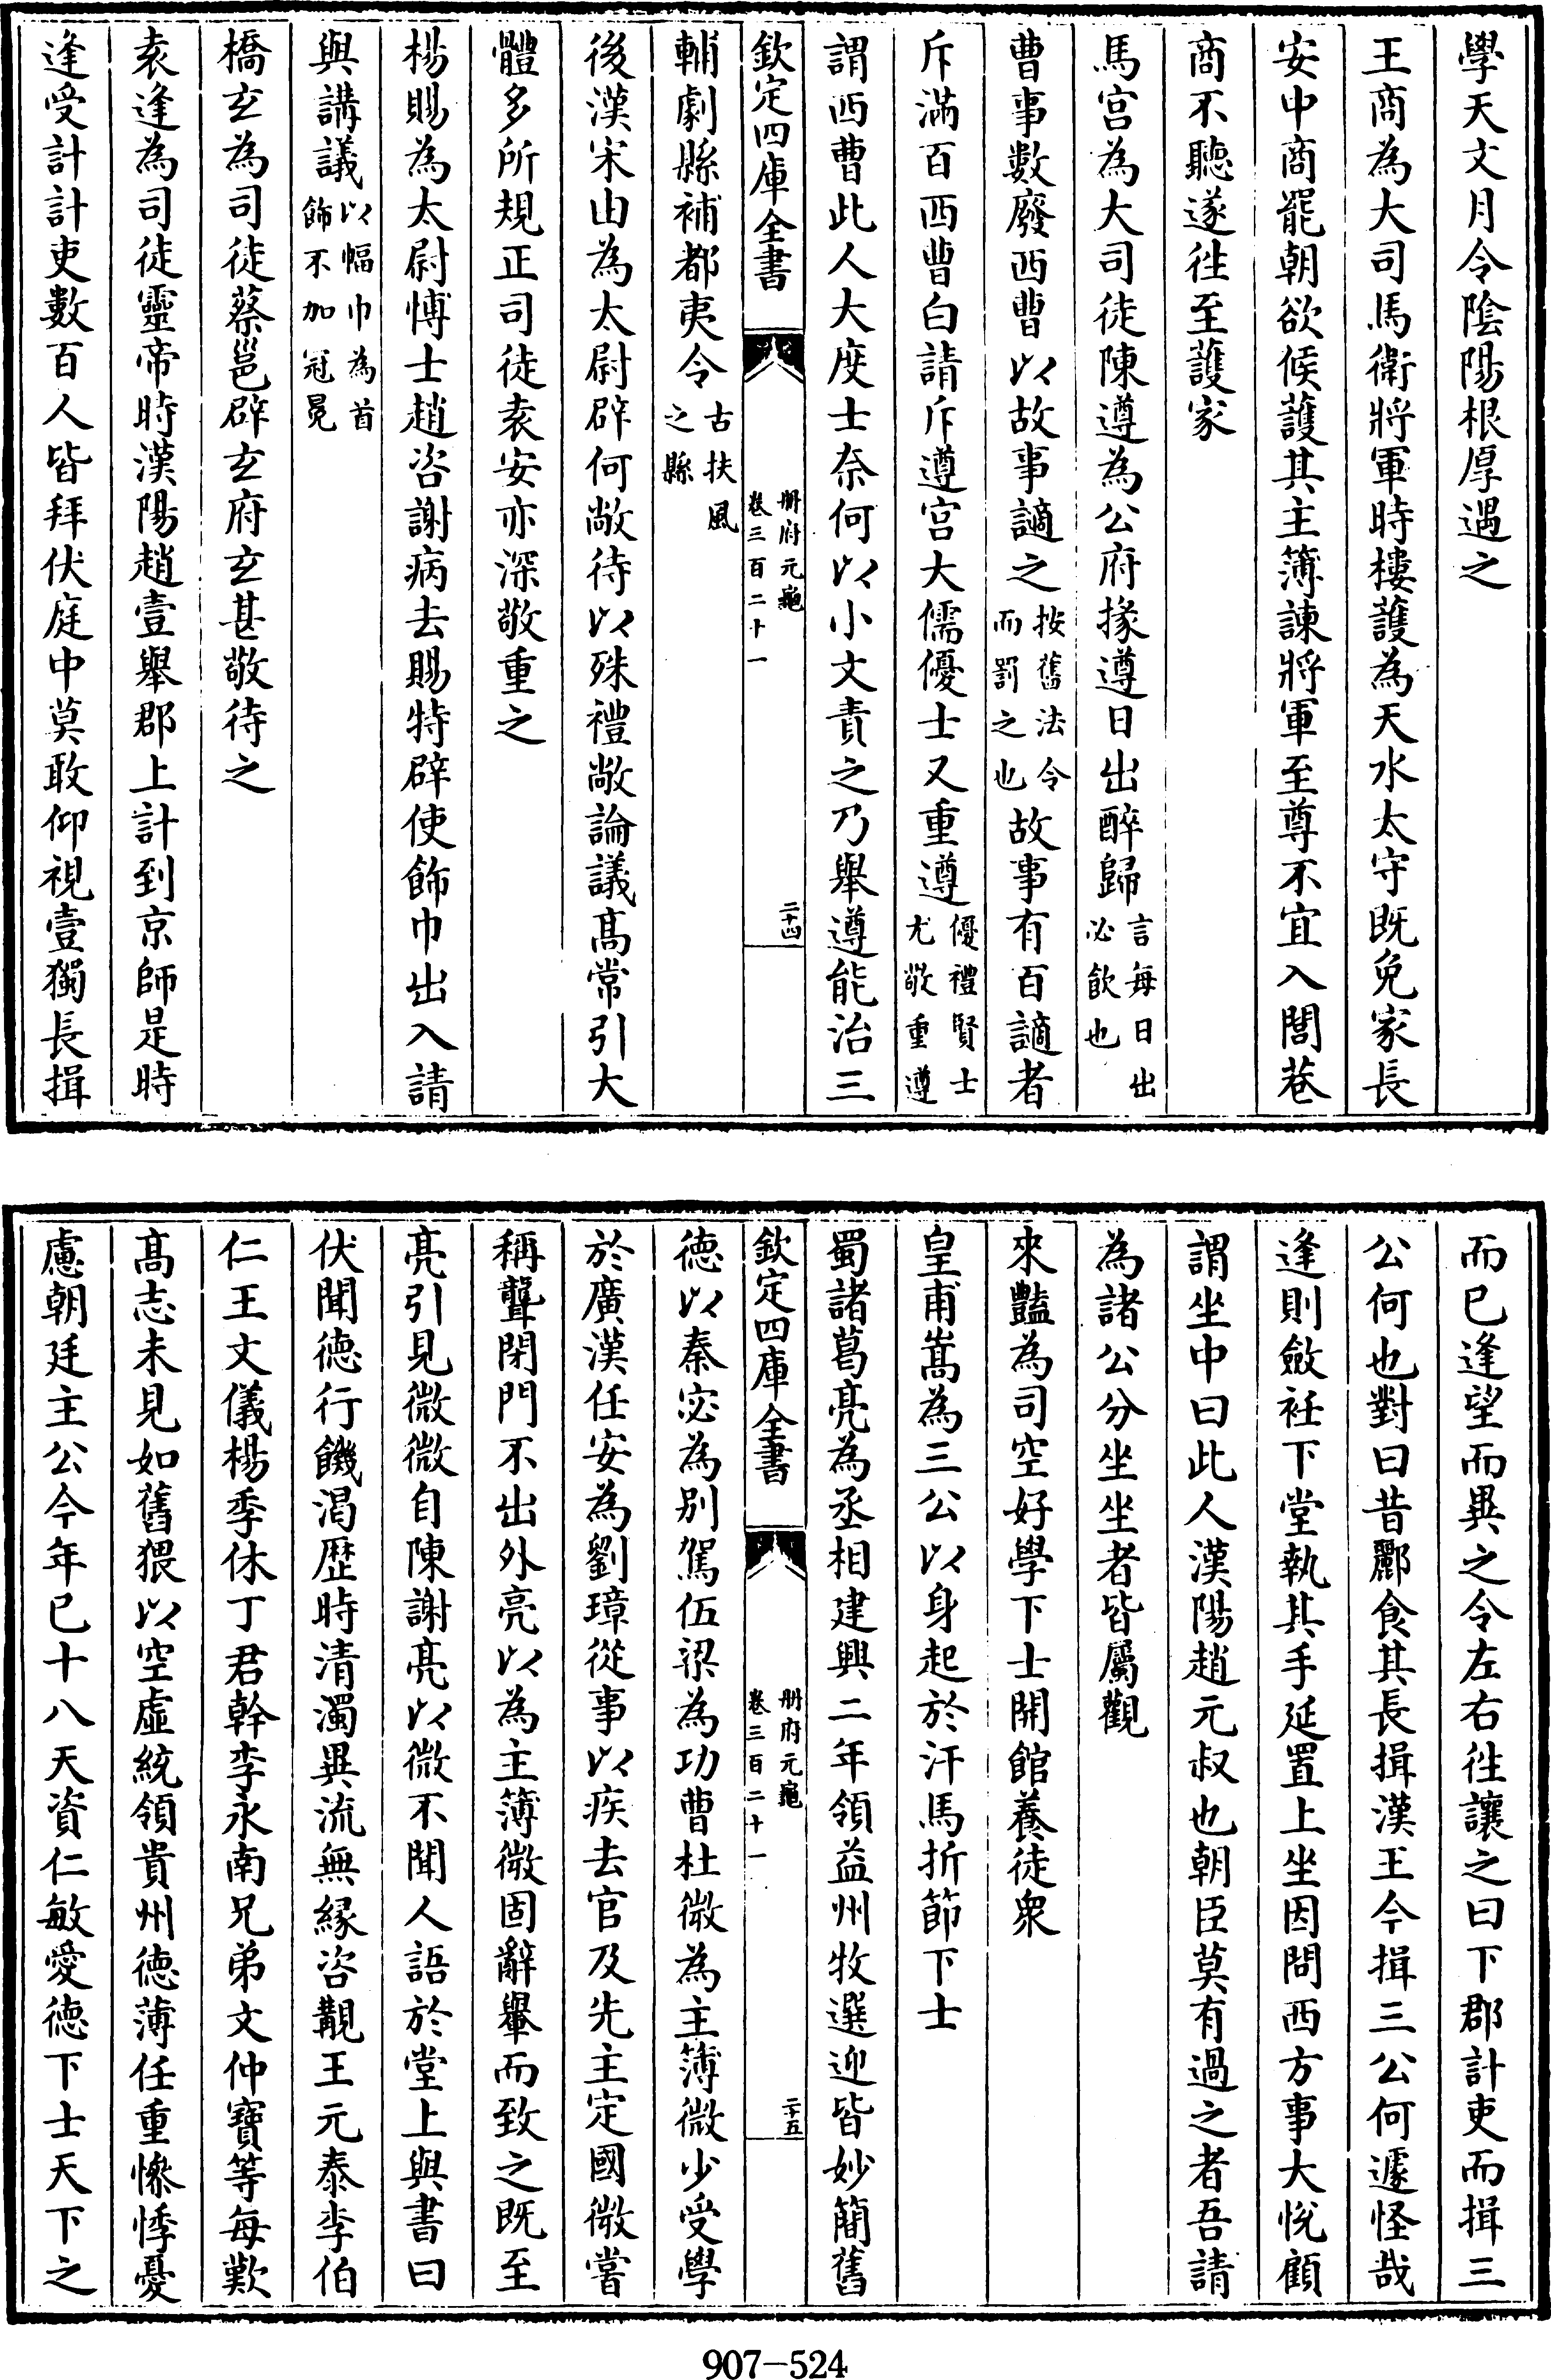 學天文月令陰陽根厚遇之
王商為大司馬衛將軍時樓䕶為天水太守既免家長
安中商罷朝欲候䕶其主簿諫將軍至尊不宜入閭巷
商不聽遂往至䕶家
馬宫為大司徒陳遵為公府掾遵日出醉歸言每日出必飲也
曹事數廢西曹以故事謫之按舊法令而罰之也故事有百謫者
斥滿百西曹白請斥遵宫大儒優士又重遵優禮賢士尤敬重遵
謂西曹此人大度士奈何以小文責之乃舉遵能治三
欽定四庫全書 册府元龜 卷三百二十一 二十四
輔劇縣補都夷令古扶風之縣
後漢宋由為太尉辟何敞待以殊禮敞論議髙常引大
體多所規正司徒袁安亦深敬重之
楊賜為太尉博士趙咨謝病去賜特辟使飾巾出入請
與講議以幅巾為首飾不加冠冕
橋玄為司徒蔡邕辟玄府玄甚敬待之
袁逢為司徒靈帝時漢陽趙壹舉郡上計到京師是時
逢受計計吏數百人皆拜伏庭中莫敢仰視壹獨長揖
而已逢望而異之令左右往讓之曰下郡計吏而揖三
公何也對曰昔酈食其長揖漢王今揖三公何遽怪哉
逢則斂衽下堂執其手延置上坐因問西方事大恱顧
謂坐中曰此人漢陽趙元叔也朝臣莫有過之者吾請
為諸公分坐坐者皆屬觀
來豔為司空好學下士開館養徒衆
皇甫嵩為三公以身起於汗馬折節下士
蜀諸葛亮為丞相建興二年領益州牧選迎皆妙簡舊
欽定四庫全書 册府元龜 卷三百二十一 二十五
德以秦宓為别駕伍梁為功曹杜微為主簿微少受學
於廣漢任安為劉璋從事以疾去官及先主定國微嘗
稱聾閉門不出外亮以為主簿微固辭轝而致之既至
亮引見微微自陳謝亮以微不聞人語於堂上與書曰
伏聞德行饑渴歴時清濁異流無緣咨覯王元泰李伯
仁王文儀楊季休丁君幹李永南兄弟文仲寶等每歎
髙志未見如舊猥以空虚統領貴州德薄任重慘悸憂
慮朝廷主公今年已十八天資仁敏愛德下士天下之
907-524